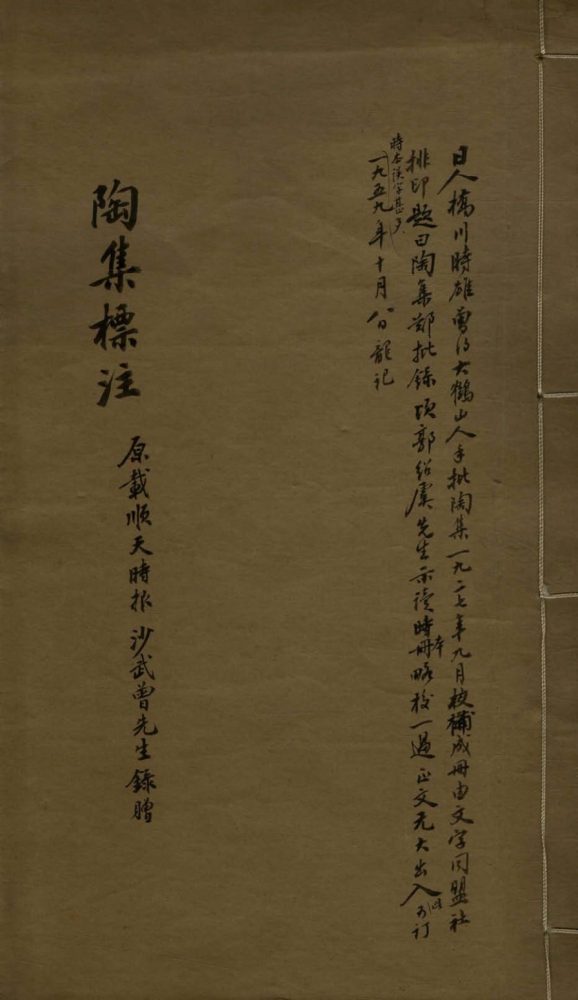 日人橋川時雄曾得大鶴山人手批陶集一九二七年九月校補成冊由文字同盟社
排印題曰陶集鄭批錄頃郭紹虞先生示讀時本冊略校一過正文无大出入可訂
時本誤字甚多
一九五九年十月八日龍記
陶集標注
原載順天時報沙武曾先生錄贈